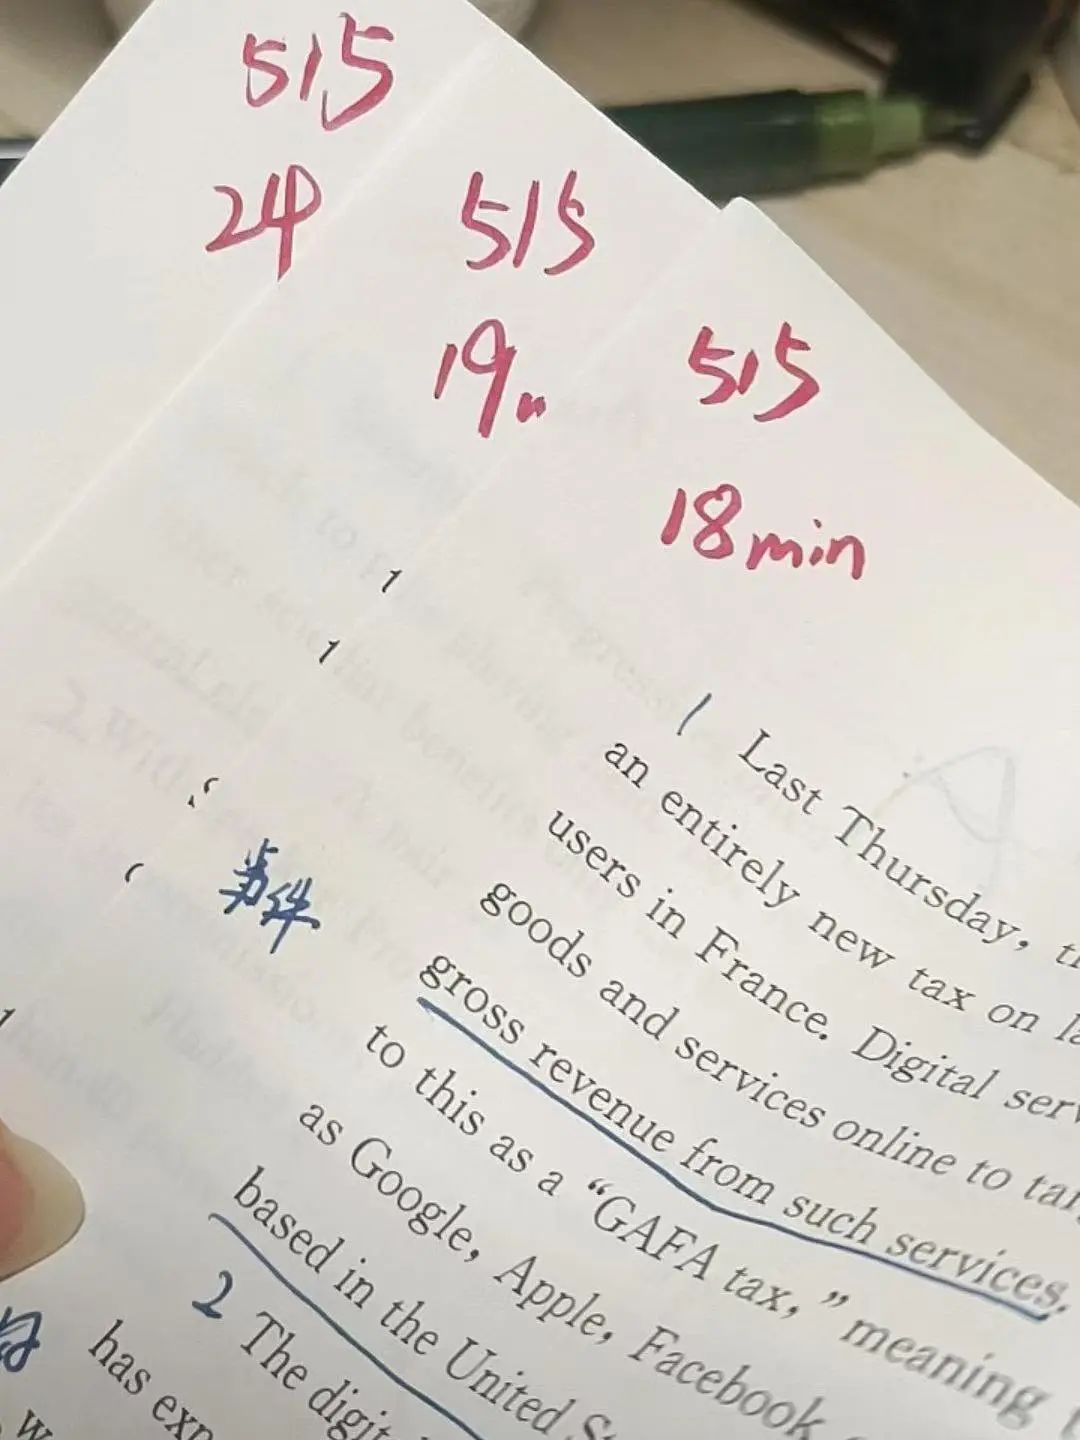 515
24
515
19m
515
18min
1 Last Thursday,
an entirely new tax on
users in France. Digital
goods and services online to
gross revenue from such services,
to this as a “GAFA tax,” meaning
as Google, Apple, Facebook
based in the United
事件
2 The
has